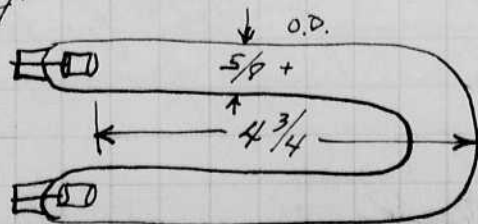 O.D.
5/8 +
4 3/4